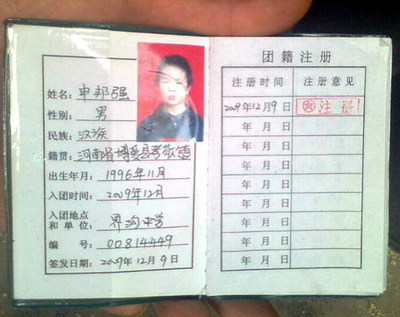 姓名: 申邦强
性别: 男
民族: 汉族
籍贯: 河南省博爱县孝敬镇
出生年月: 1996年11月
入团时间: 2009年12月
入团地点
和单位: 界沟中学
编 号: 00814449
签发日期: 2009年12月9日
团籍注册
注册时间 注册意见
2009年12月9日 注册
年 月 日
年 月 日
年 月 日
年 月 日
年 月 日
年 月 日
年 月 日
年 月 日